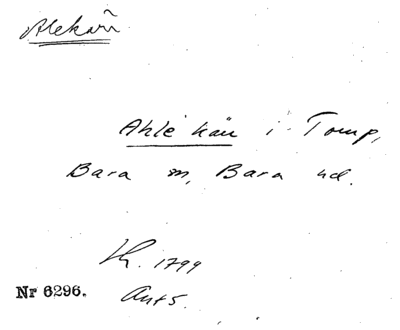 Alekärr
Ahle kärr i Torup,
Bara sn, Bara hd.
Lk. 1799
Nr 6296.
Ant 5.